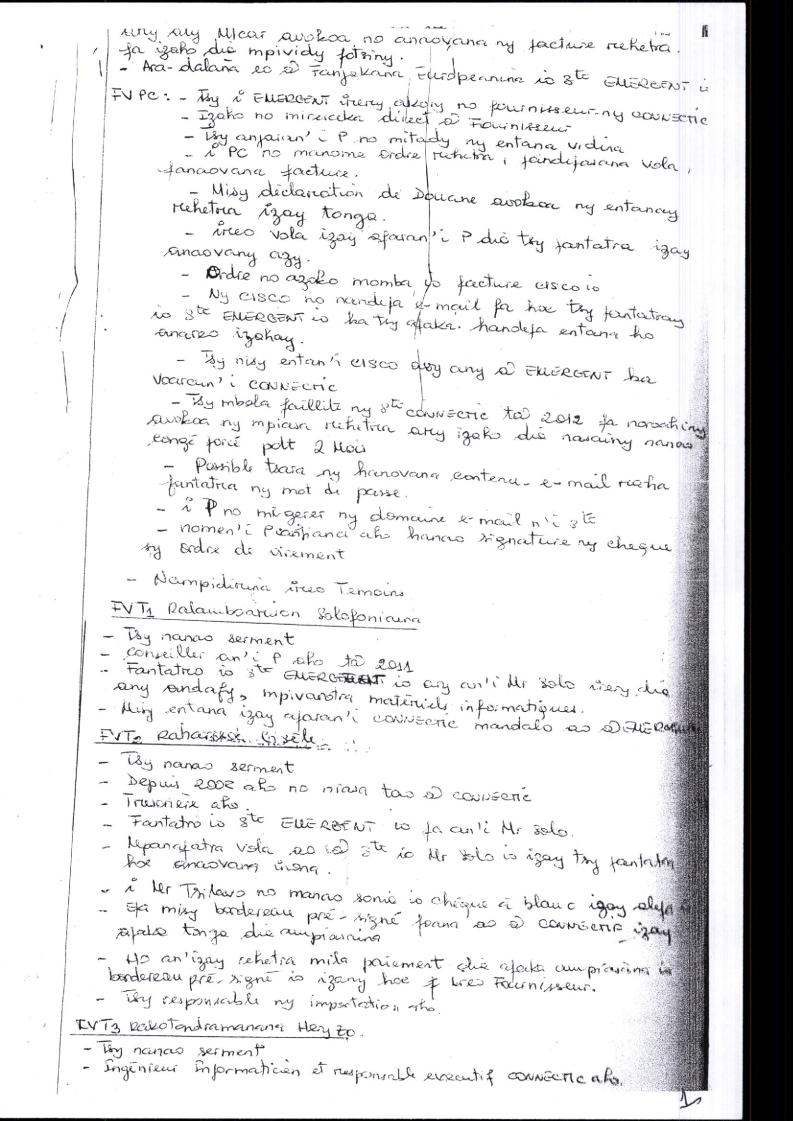 any Micar avokoa no anaovana ny facture rehetra.
fa izaho dia mpividy fotsiny.
- Ara-dalàna eo @ Fanjakana Européanina io sté EMERGENT i
FVPC: - Tsy i EMERGENT irery akory no fournisseur-ny CONNECTIC
- Izaho no miresaka direct @ Fournisseur
- Tsy anjaran'i P no mitady ny entana vidina
- i PC no manome ordre rehetra, fandefasana vola,
fanaovana facture.
- Misy déclaration de Douane avokoa ny entanay
rehetra izay tonga.
- ireo vola izay afaran'i P dia tsy fantatra izay
anaovany azy.
- Ordre no azoko momba io facture cisco io
- Ny CISCO no nandefa e-mail fa hoe tsy fantatray
io sté EMERGENT io ka tsy afaka handefa entana ho
anareo izahay.
- Tsy nisy entan'i CISCO avy any @ EMERGENT ka
voarain'i CONNECTIC
- Tsy mbola faillite ny sté CONNECTIC tà 2012 fa noroahiny
avokoa ny mpiasa rehetra ary izaho dia nasainy nanao
congé forcé pdt 2 Mois
- Possible tsara ny hanovana contenu - e-mail raha
fantatra ny mot de passe.
- i P no mi-gérer ny domaine e-mail n'i sté
- nomen'i P ahо hanao signature ny cheque
sy ordre de virement
- Nampidirina ireo Temoins
FVT1 Ralamboarison Solofoniaina
- Tsy nanao serment
- Conseiller an'i P aho tà 2011
- Fantatro io sté EMERGENT io ary an'i Mr Solo irery dia
any andafy, mpivarotra matériels informatiques.
- Misy entana izay afaran'i CONNECTIC mandalo ao @ EMERGENT
FVT2 Gisèle
- Tsy nanao serment
- Depuis 2002 aho no niasa tao @ CONNECTIC
- Trésorière aho.
- Fantatro io sté EMERGENT io fa an'i Mr Solo.
- Mpanafatra vola ao @ sté io Mr Solo io izay tsy fantatra
hoe anaovana inona.
- i Mr Tsilavo no manao sonia io chèque à blanc izay alefa
- Efa misy bordereau pré-signé foana ao @ CONNECTIC izay
afaka tonga dia ampiasaina
- Ho an'izay rehetra mila paiement dia afaka ampiasaina io
bordereau pré-signé io izany hoe ireo Fournisseur.
- Tsy responsable ny importation aho
FVT3 Rakotondramanana Hery Zo.
- Tsy nanao serment
- Ingénieur Informaticien et responsable executif CONNECTIC aho.